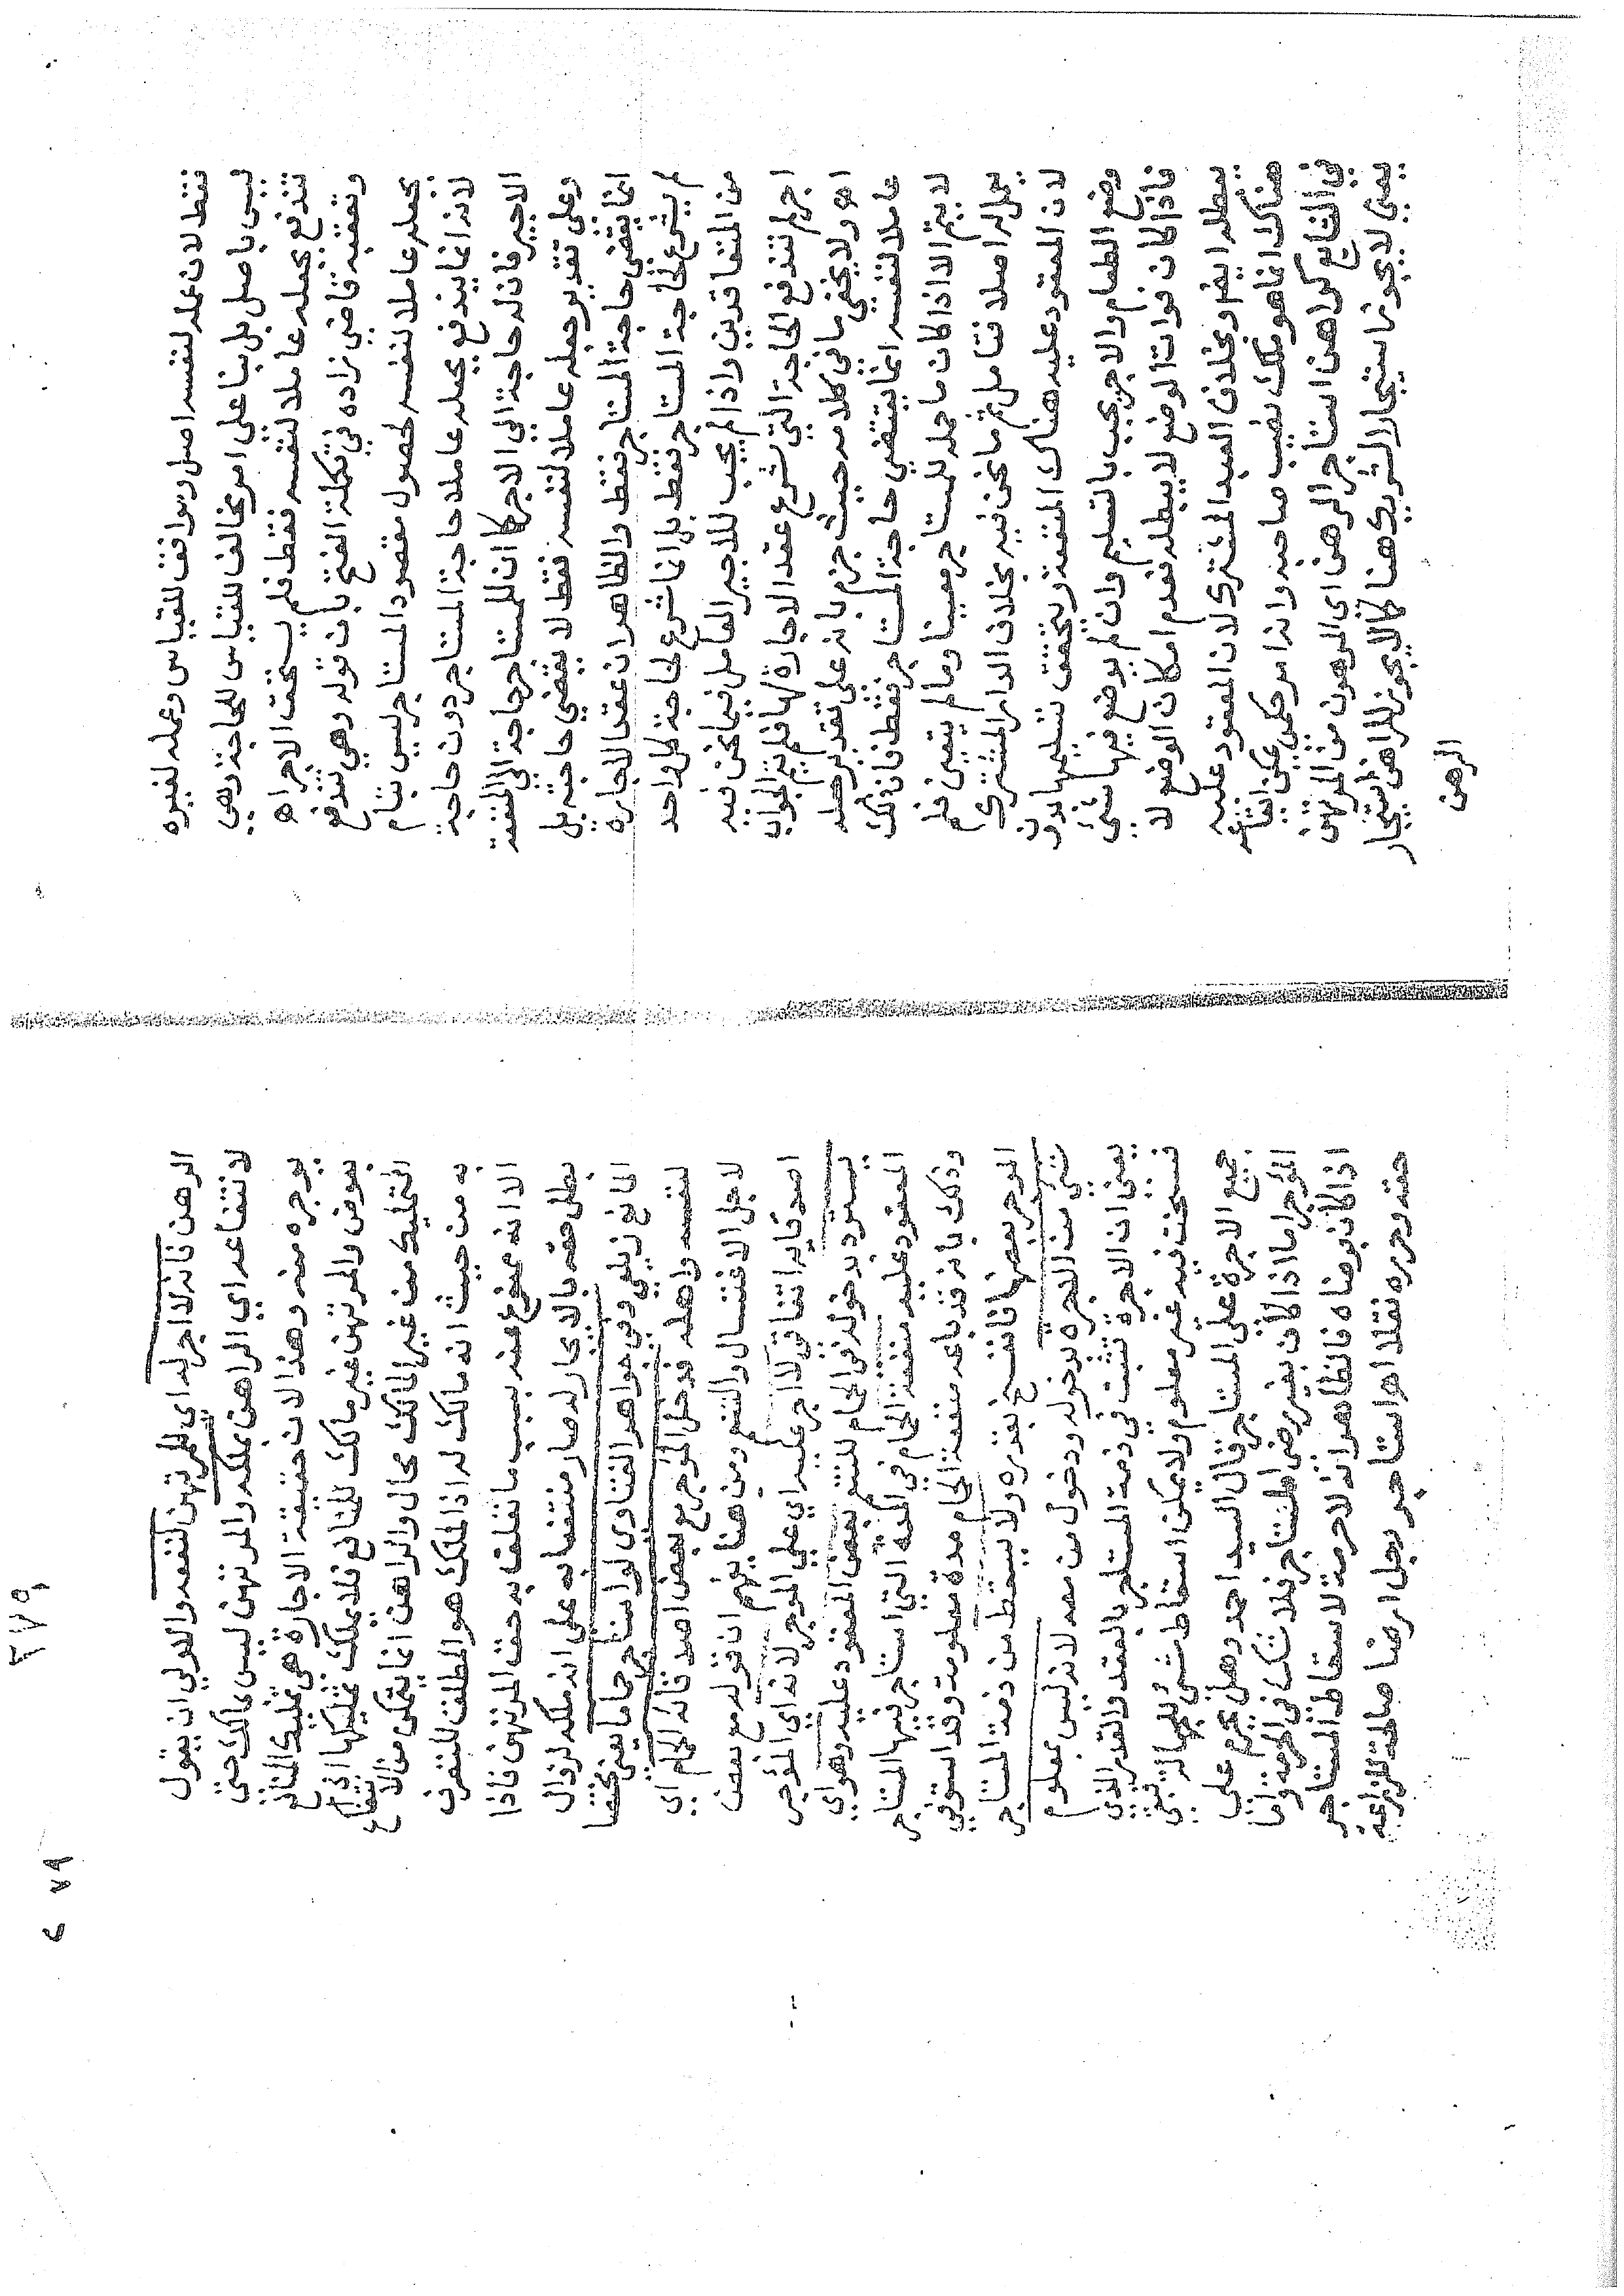 فقط لان عمله لنفسه اصل وموافق للقياس وعمله لغيره
ليس باصل بل بنا على امر مخالف للقياس للحاجة وهي
تندفع بجعله عاملا لنفسه فقط فلم يستحق الاجر اه
وتعقبه قاضي زاده في تكملة الفتح بان قوله وهي تندفع
بجعله عاملا لنفسه لحصول مقصود المستاجر ليس بتام
لانه انما يندفع بجعله عاملا حاجة المستاجر دون حاجة
الاجير فان له حاجة الي الاجر كما ان للمستاجر حاجة الي المنفعة
وعلى تقدير جعله عاملا لنفسه فقط لا يقضي حاجته بل
انما يقضى حاجة المستاجر فقط والظاهر ان عقد الاجارة
لم يشرع لحاجة المستاجر فقط بل انما شرع لحاجة كل واحد
من المتعاقدين واذا لم يجب للاجير العامل فيما نحن فيه
اجر لم تندفع الحاجة التي شرع عقد الاجارة لها فلم يتم الجواب
اه ولا يخفى ما في كلامه حيث جزم بانه على تقدير جعله
عاملا لنفسه انما يقتضي حاجة المستاجر فقط فان ذلك
لا يتم الا اذا كان ما حمله للمستاجر معينا وما لم يتعين فلم
يعمل له اصلا فتامل ثم ما نحن فيه بخلاف الدار المشتركة
لان المعقود عليه هناك المنفعة ويتحقق تسليمها بدون
وضع الطعام والاجر يجب بالتسليم وان لم يوضع فيها شئ
فاذا كان فوات الوضع لا يبطله فعدم امكان الوضع لا
يبطله ايضا وبخلاف العبد المشترك لان المعقود عليه
هناك انما هو ملك نصيب صاحبه وانه امر حكمي يمكن ايقاعه
في الشايع كراهن استاجر الرهن اى المرهون من المرتهن
يعني لا يجوز استيجار الشريك هنا كما لا يجوز للراهن استيجار
الرهن
٢٧٩
الرهن فانه لا اجر له اي للمرتهن لنفعه والاولي ان يقول
لانتفاعه اي الراهن بملكه والمرتهن ليس بمالك حتى
يوجره منه وهذا لان حقيقة الاجارة هي تمليك المنافع
بعوض والمرتهن غير مالك للمنافع فلا يملك تمليكها اذ
التمليك من غير المالك محال والراهن انما يتمكن من الانتفاع
به من حيث انه مالك له اذ الملك هو المطلق للتصرف
الا انه ممنوع منه بسبب ما تعلق به حق المرتهن فاذا
بطل حقه بالايجار له صار منتفعا به على انه ملكه لزوال
المانع زيلعي وفي جواهر الفتاوى لو استاجر حماما يعني مختصا
لنفسه واهله فدخل الموجر مع بعض اصدقائه الحمام اي
لاجل الاغتسال والتنعم ومن هنا يفهم ان قوله مع بعض
اصدقايه اتفاقي لا اجر عليه اي علي الموجر لانه اى الموجر
يسترد بدخوله في الحمام للتنعم بعض المعقود عليه وهو اي
المعقود عليه منفعة الحمام في المدة التي استاجر فيها المستاجر
وذلك بانه قد باعه منفعة الحمام مدة معلومة وقد استوفى
الموجر بعضها فانفسخ بقدره ولا يسقط من ذمة المستاجر
شئ من الاجرة بدخوله ودخول من معه لانه ليس بمعلوم
يعني ان الاجرة تثبت في ذمة المستاجر بالعقد والقدر الذي
فسخت فيه غير معلوم ولا يمكن اسقاط شي للجهالة فيبقى
جميع الاجرة على المستاجر قال السيد احمد وهل يحرم على
الموجر اما اذا كان بغير رضى المستاجر فلا شك في الحرمة واما
اذا كان برضاه فالظاهر انه لا حرمة لاسقاط المستاجر
حقه وحرره نقلا اه استاجر رجل ارضا صالحة للزراعة
٢٧٩